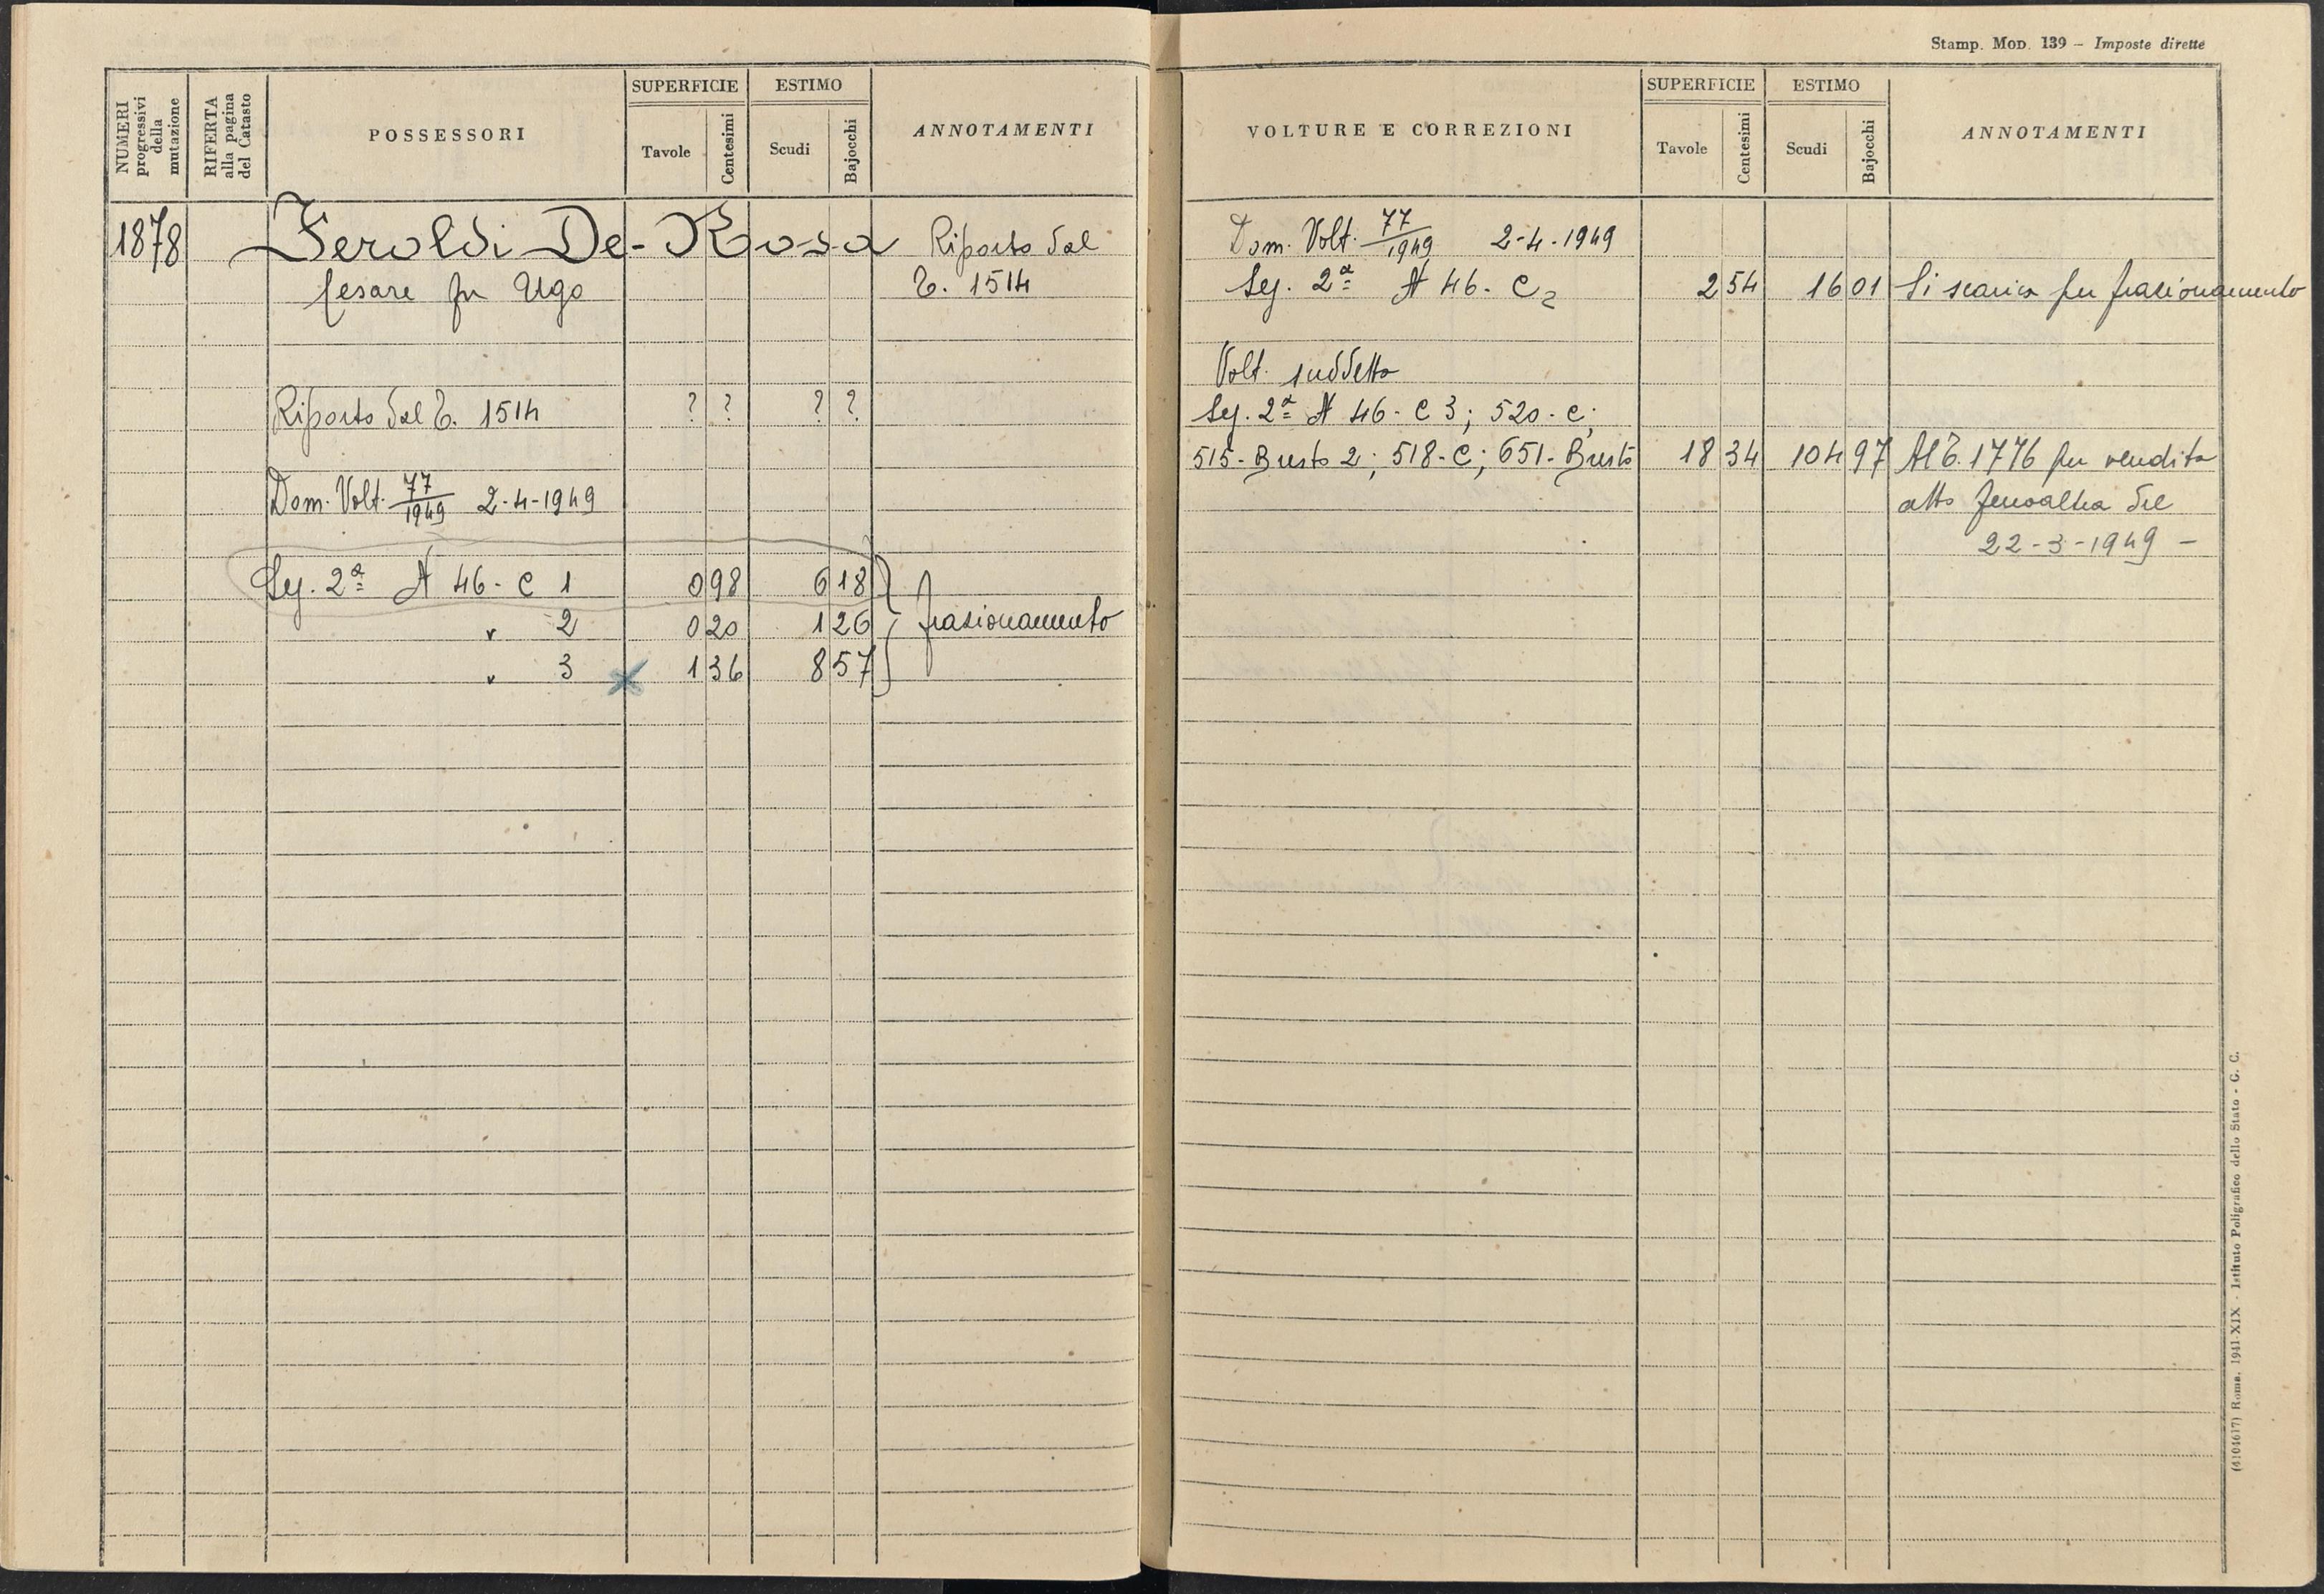 Stamp. Mod. 139 - Imposte dirette
NUMERI progressivi della mutazione
RIFERTA alla pagina del Catasto
POSSESSORI
SUPERFICIE
Tavole
Centesimi
ESTIMO
Scudi
Bajocchi
ANNOTAMENTI
1878 Feroldi De-Rosa Riporto dal
Cesare fu Ugo T. 1514
Riporto dal T. 1514 ? ? ? ?
Dom. Volt. 77/1949 2-4-1949
Sez. 2ª N 46 - C 1 0 98 6 18
" 2 0 20 1 26 frazionamento
" 3 1 36 8 57
VOLTURE E CORREZIONI
SUPERFICIE
Tavole
Centesimi
ESTIMO
Scudi
Bajocchi
ANNOTAMENTI
Dom. Volt. 77/1949 2-4-1949
Sez. 2ª N 46 - C2 2 54 16 01 Si scarica per frazionamento
Volt. suddetta
Sez. 2ª N 46 - C 3; 520 - C;
515 - Busto 2; 518 - C; 651 - Busto 18 34 104 97 Al T. 1776 per vendita
atto del
22-3-1949 -
(4104617) Roma, 1941-XIX - Istituto Poligrafico dello Stato - G. C.